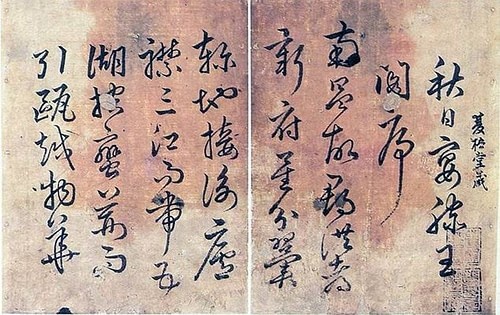 梧堂藏
秋日宴滕王
閣序
南昌故郡洪都
新府星分翼
軫地接衡廬
襟三江而帶五
湖控蠻荊而
引甌越物華